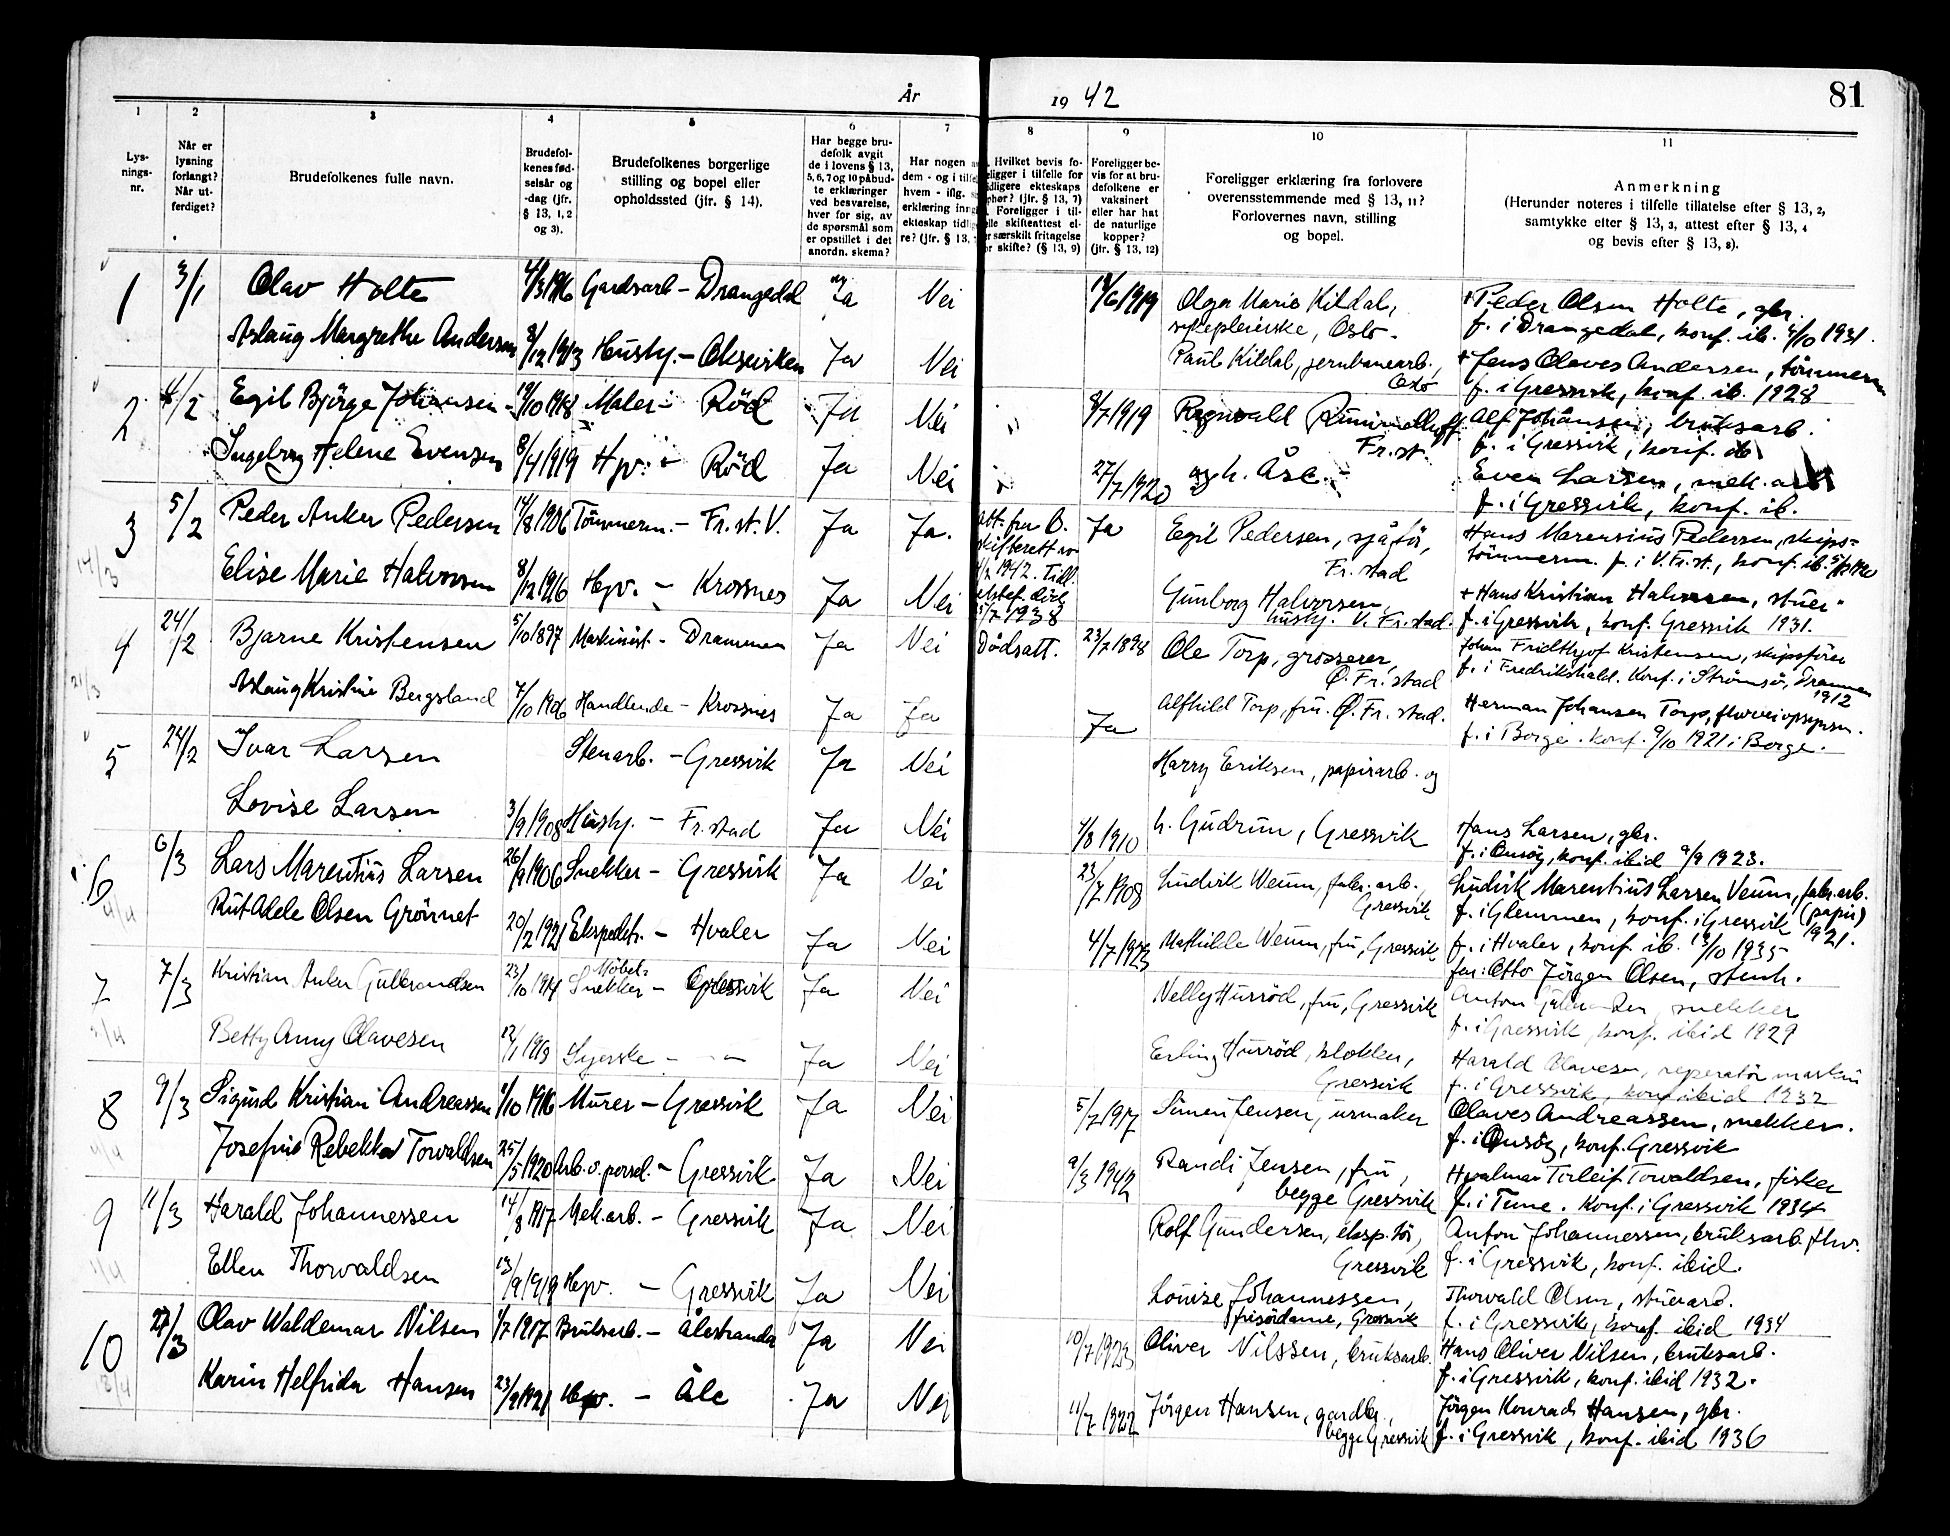 År 1942
81
1
2
3
4
5
6
7
8
9
10
11
Lys-
nings-
nr.
Når er
lysning
forlangt?
Når ut-
ferdiget?
Brudefolkenes fulle navn.
Brudefol-
kenes fød-
selsår og
-dag (jfr.
§ 13, 1, 2
og 3).
Brudefolkenes borgerlige
stilling og bopel eller
opholdssted (jfr. § 14).
Har begge bru-
defolk avgit
de i lovens § 13,
5, 6, 7 og 10 påbud-
te erklæringer
ved besvarelse,
hver for sig, av
de spørsmål som
er opstillet i det
anordn. skema?
Har nogen
dem - og i tilfe
hvem - iflg.
erklæring inng
ekteskap tidlig
re? (jfr. § 13,
Hvilket bevis fo-
eligger i tilfelle for
idligere ekteskaps
phør? (jfr. § 13, 7)
Foreligger i til-
elle skifteattest el-
er særskilt fritagelse
or skifte? (§ 13, 9)
Foreligger be-
vis for at bru-
defolkene er
vaksinert
eller har hat
de naturlige
kopper?
(jfr. § 13, 12)
Foreligger erklæring fra forlovere
overensstemmende med § 13, 11?
Forlovernes navn, stilling
og bopel.
Anmerkning
(Herunder noteres i tilfelle tillatelse efter § 13, 2,
samtykke efter § 13, 3, attest efter § 13, 4
og bevis efter § 13, 8).
1 3/1 Olav Holte 1916 Gardsarb - Drangedal Ja Nei 1919 Olga Marie Kildal, + Peder Olsen Holte, gbr.
sykepleierske, Oslo. f. i Drangedal, konf. ib. 4/10 1931.
Aslaug Margrethe Andersen 8/12 1913 Hushj. - Ja Nei Paul Kildal, jernbanearb., Oslo + Jens Olaves Andersen, tömmerm
f. i Gressvik, konf. ib. 1928
2 4/2 Egil Bjørge Johansen 19/10 1918 Maler - Rød Ja Nei 8/7 1919 Ragnvald Fr.st. Alf Johansen, bruksarb.
f. i Gressvik, konf. ib
Ingeborg Helene Evensen 8/4 1919 Hjv. - Rød Ja Nei 27/7 1920 og h. Åse. Even Larsen, mek. arb
f. i Gressvik, konf. ib.
3 5/2 Peder Anker Pedersen 1906 Tömmerm. - Fr.st. V. Ja Ja. att. fra B. Ja Egil Pedersen, sjåför, Fr.stad Hans Marensius Pedersen, skips-
skifterett tömmerm. f. i V. Fr.st., konf. ib.
1942. Tidl.
14/3 Elise Marie Halvorsen 8/12 1916 Hjv. - Krossnes Ja Nei død Gunborg Halvorsen, hushj. V. Fr.stad. + Hans Kristian Halvorsen, stuer
5/7 1938 f. i Gressvik, konf. Gressvik 1931.
4 24/2 Bjarne Kristensen 5/10 1897 Maskinist - Drammen Ja Nei Dødsatt. 23/7 1898 Ole Torp, grosserer, Ø. Fr.stad Johan Fridthjof Kristensen, skipsförer
f. i Fredrikshald. Konf. i Strømsø, Drammen 1912
21/3 Aslaug Kristine Bergsland 7/10 1906 Handlende - Krossnes Ja Ja Ja Alfhild Torp, fru. Ø. Fr.stad. Herman Johansen Torp,
f. i Borge. konf. 9/10 1921 i Borge.
5 24/2 Ivar Larsen Stenarb. - Gressvik Ja Nei Harry Eriksen, papirarb. og
Lovise Larsen 3/9 1908 Hushj. - Fr.stad Ja Nei 4/8 1910 h. Gudrun, Gressvik Hans Larsen, gbr.
f. i Onsøy, konf. ibid 9/9 1923.
6 6/3 Lars Marentius Larsen 26/9 1906 Snekker - Gressvik Ja Nei 23/7 1908 Ludvik Weum, fabr.arb., Gressvik Ludvik Marentius Larsen Veum, fabr.arb. (papir)
f. i Glemmen, konf. i Gressvik 1921.
4/4 Rut Adele Olsen Grönnet 20/2 1921 Ekspedtr. - Hvaler Ja Nei 4/7 1923 Mathilde Weum, fru, Gressvik f. i Hvaler, konf. ib. 13/10 1935
far: Otto Jörgen Olsen, stenh.
7 7/3 Kristian Anker Gulbrandsen 23/10 1914 Möbel-
Snekker - Gressvik Ja Nei Nelly Hurröd, fru, Gressvik Anton snekker
f. i Gressvik, konf. ibid 1929
Betty Anny Olavesen 1918 Syerske - - Ja Nei Erling Hurröd, klokker, Gressvik Harald Olavesen, reperatör maskin
f. i Gressvik, konf. ibid 1932
8 9/3 Sigurd Kristian Andreassen 1916 Murer - Gressvik Ja Nei 5/7 1917 Simen Jensen, urmaker Olaves Andreassen, snekker.
f. i Onsøy, konf. Gressvik
Josefine Rebekka Torvaldsen 25/5 1920 Arb. v. porsel. - Gressvik Ja Nei 9/3 1942 Randi Jensen, fru, Hvalmar Torleif Torvaldsen, fisker
begge Gressvik f. i Tune. Konf. i Gressvik 1934
9 11/3 Harald Johannessen 14/8 1917 Mek.arb. - Gressvik Ja Nei Rolf Gundersen, eksp. tör, Gressvik Anton Johannessen, bruksarb.
f. i Gressvik, konf. ibid.
Ellen Thorvaldsen 13/9 1919 Hjv. - Gressvik Ja Nei Louise Johannessen, frisördame, Gressvik Thorvald Olsen, stuearb.
f. i Gressvik, konf. ibid 1934
10 27/3 Olav Waldemar Nilsen 1/7 1917 Bruksarb. - Ålestranda Ja Nei 10/7 1923 Oliver Nilssen, bruksarb. Hans Oliver Nilsen, bruksarb.
f. i Gressvik, konf. ibid 1932.
Karin Helfrida Hansen 23/9 1921 Hjv. - Åle Ja Nei 11/7 1922 Jörgen Hansen, gardbr., begge Gressvik Jörgen Konrad Hansen, gbr.
f. i Gressvik, konf. ibid 1936